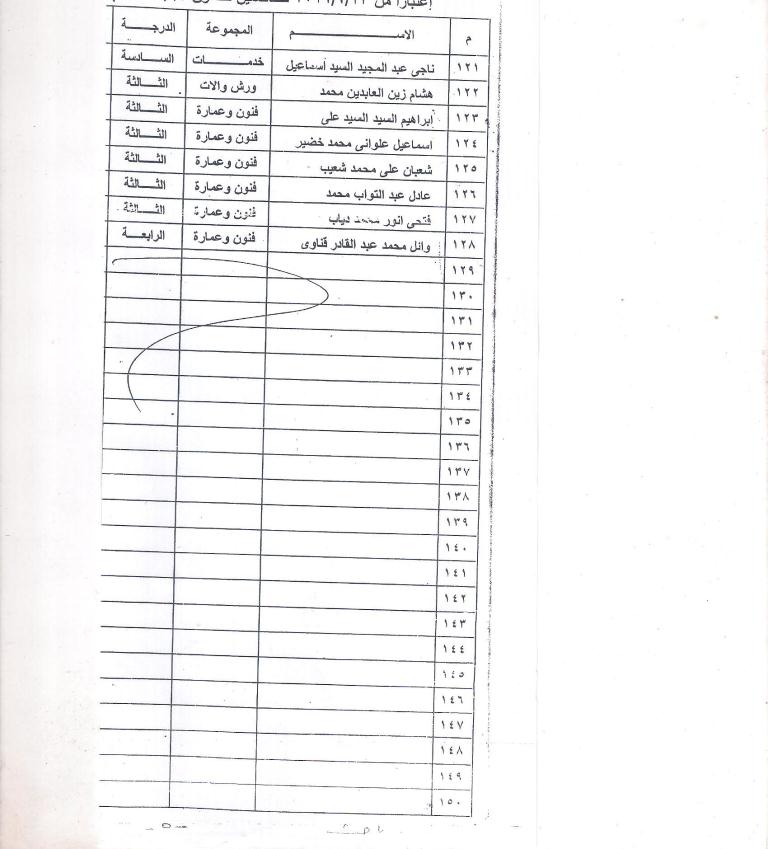 إعتبارا من
م الاســـــم المجموعة الدرجـــة
١٢١ ناجى عبد المجيد السيد أسماعيل خدمـــات الســـادسة
١٢٢ هشام زين العابدين محمد ورش والات الثـــالثة
١٢٣ أبراهيم السيد السيد على فنون وعمارة الثـــالثة
١٢٤ اسماعيل علوانى محمد خضير فنون وعمارة الثـــالثة
١٢٥ شعبان على محمد شعيب فنون وعمارة الثـــالثة
١٢٦ عادل عبد التواب محمد فنون وعمارة الثـــالثة
١٢٧ فتحى انور محمد دياب فنون وعمارة الثـــالثة
١٢٨ وائل محمد عبد القادر قناوى فنون وعمارة الرابعة
١٢٩
١٣٠
١٣١
١٣٢
١٣٣
١٣٤
١٣٥
١٣٦
١٣٧
١٣٨
١٣٩
١٤٠
١٤١
١٤٢
١٤٣
١٤٤
١٤٥
١٤٦
١٤٧
١٤٨
١٤٩
١٥٠